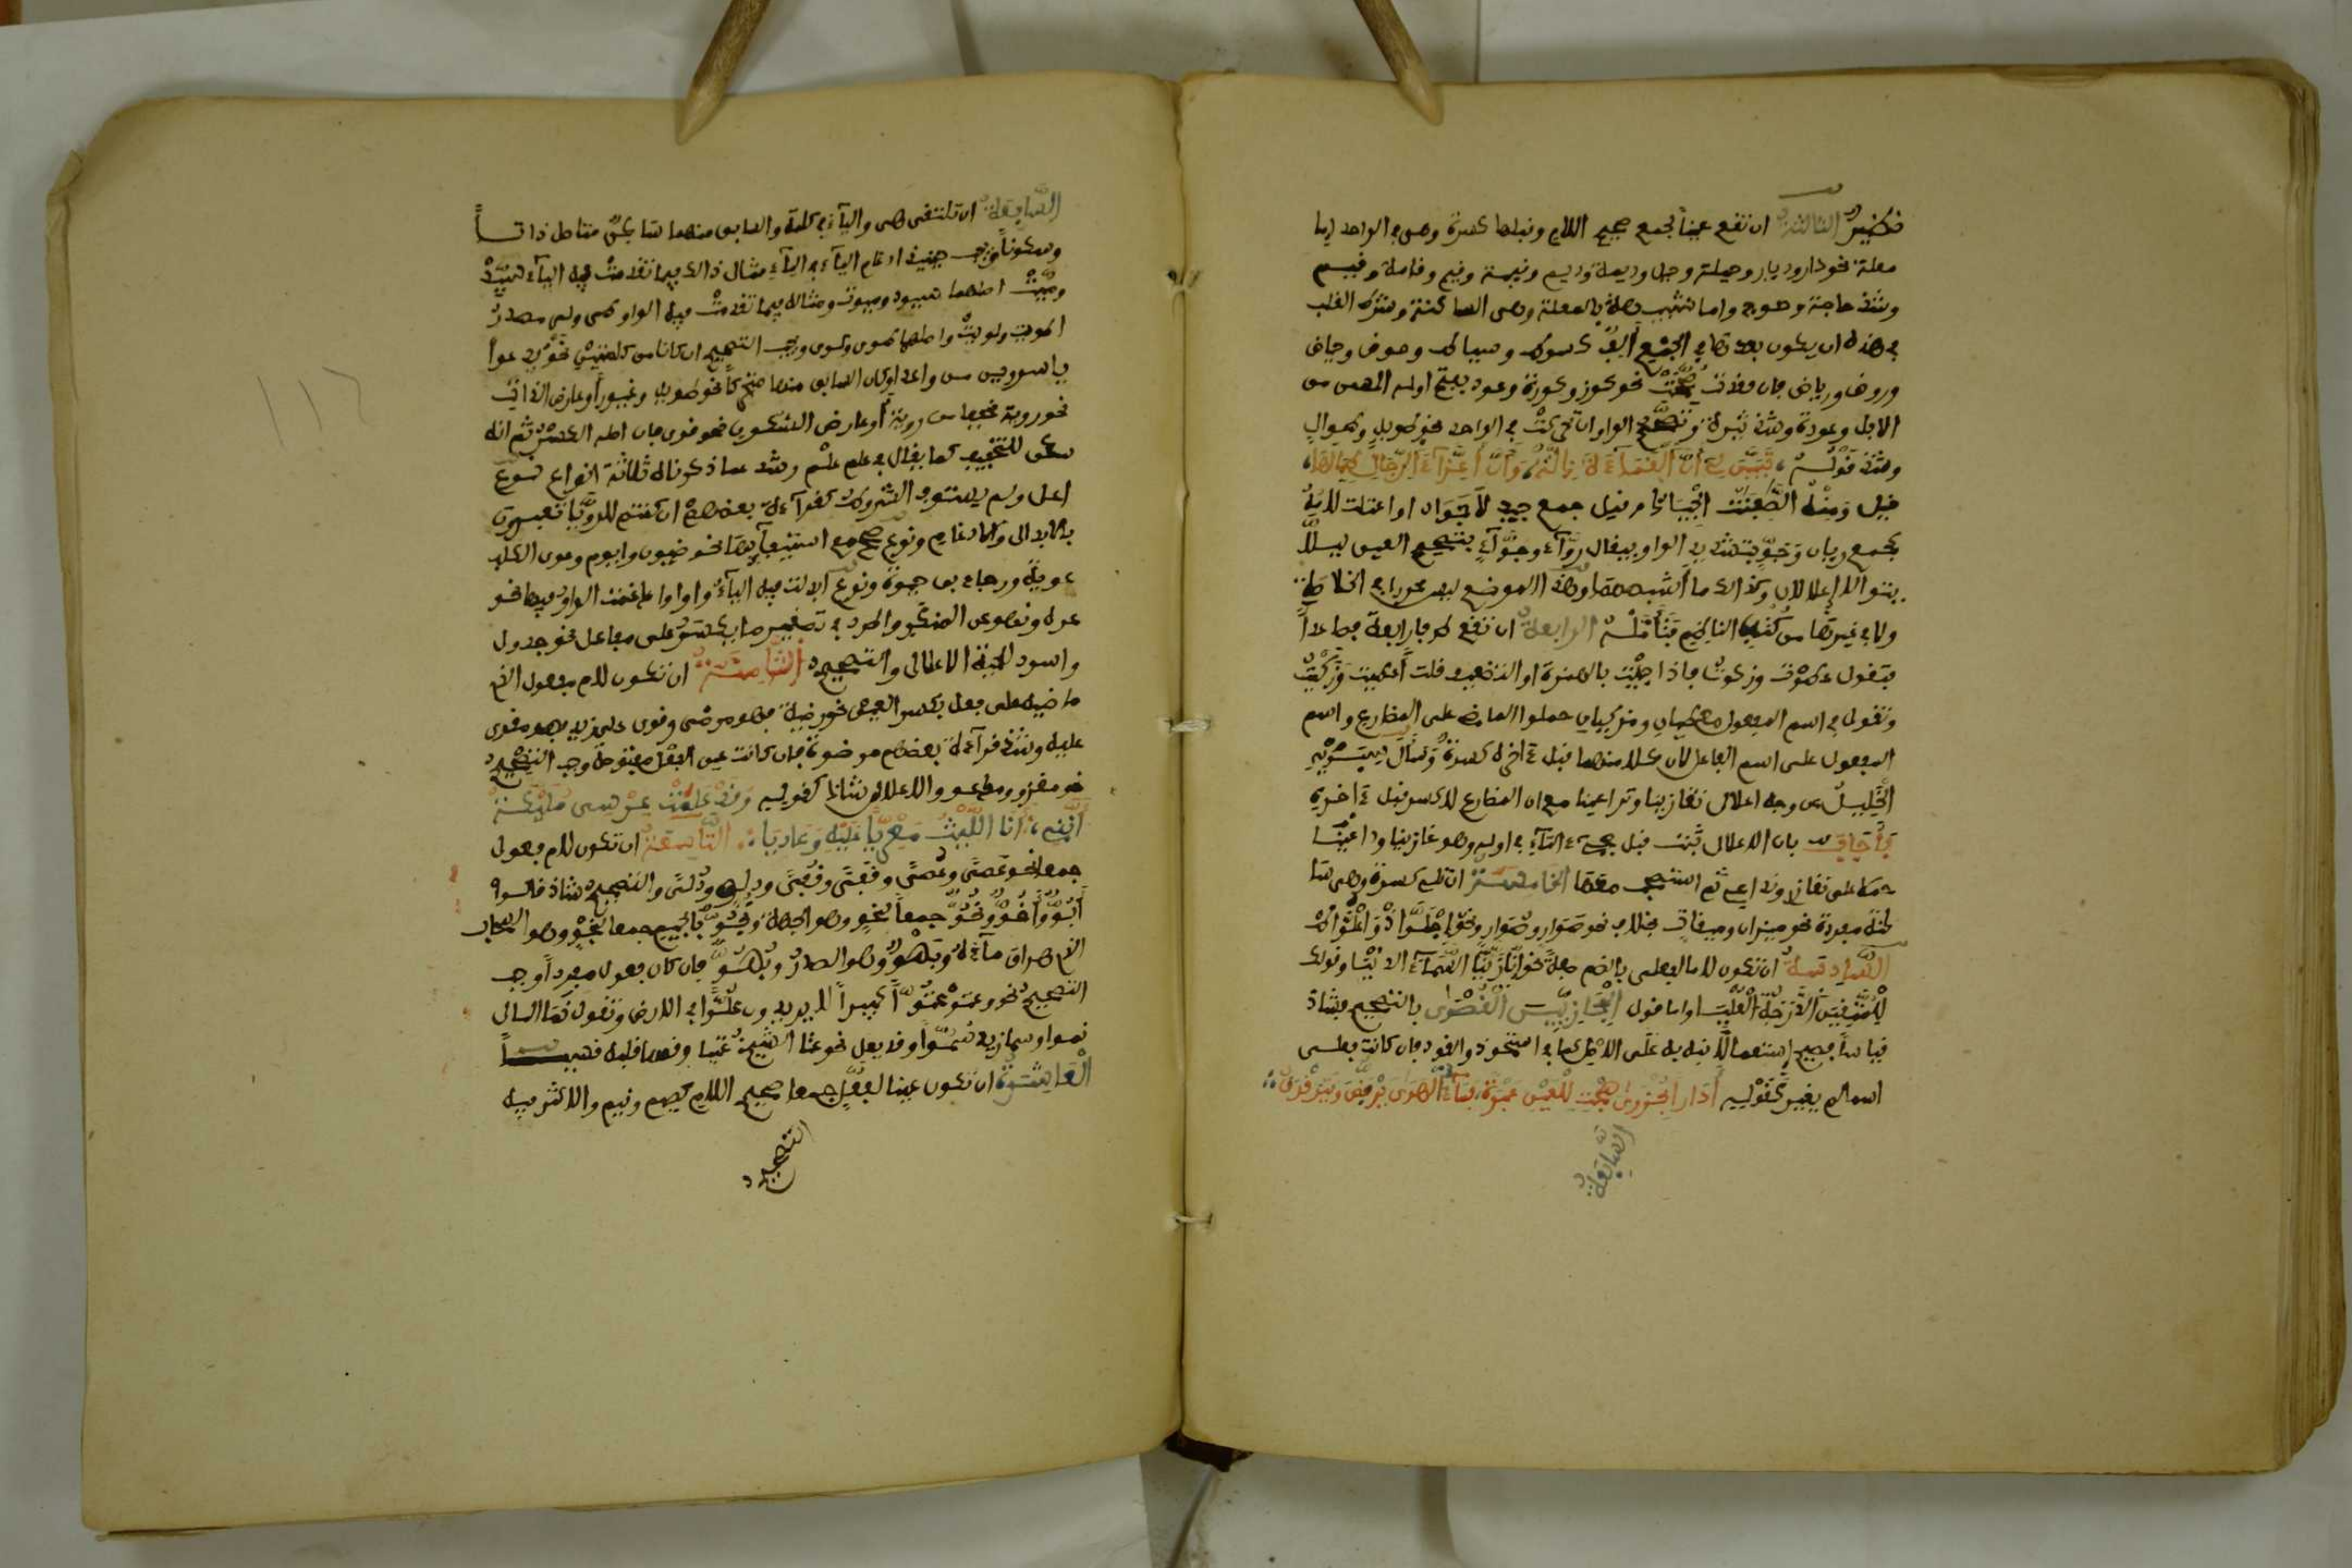 الثالثة ان تقع عينا لجمع صحيح اللام وقبلها كسرة وهي في الواحد اما
معلة نحو دار وديار وحيلة وحيل وديمة وديم وقيمة وقيم وقامة وقيم
وشذ حاجة وحوج واما شبيهة بالمعلة وهي الساكنة وشرط القلب
في هذه ان يكون بعدها في الجمع ألف كسوط وسياط وحوض وحياض
وروض ورياض فان فقدت صحت نحو كوز وكوزة وعود بفتح اوله المسن من
الابل وعودة وشذ ثيرة وتصح الواو ان تحركت في الواحد نحو طويل وطوال
وشذ قوله تبين لي أن القماءة ذلة وأن أعزاء الرجال طيالها
قيل ومنه الصافنات الجياد وقيل جمع جيد لا جواد او اعتلت لامه
كجمع ريان وجو بتشديد الواو فيقال رواء وجواء بتصحيح العين ليلا
يتوالى إعلالان وكذلك ما أشبههما وهذا الموضع ليس محررا في الخلاصة
ولا في غيرها من كتب الناظم فتأمله الرابعة ان تقع طرفا رابعة فصاعدا
فتقول عطوت وزكوت فاذا جئت بالهمزة او التضعيف قلت أعطيت وزكيت
وتقول في اسم المفعول معطيان ومزكيان حملوا الماضي على المضارع واسم
المفعول على اسم الفاعل لان كلا منهما قبل ءاخره كسرة وسأل سيبويه
الخليل عن وجه اعلال تغازينا وتداعينا مع ان المضارع لا كسر قبل ءاخره
فأجاب بان الاعلال ثبت قبل مجيء التاء في اوله وهو غازينا وداعينا
حملا على نغازي ونداعي ثم استصحب معها الخامسة ان تلي كسرة وهي سا
كنة مفردة نحو ميزان وميقات بخلاف نحو صوان وصوار ونحو اجلواذ واعلواط
السادسة ان تكون لاما لفعلى بالضم صفة نحو إنا زينا السماء الدنيا وقولك
للمتقين الدرجة العليا واما قول الحجازيين القصوى بالتصحيح فشاذ
قياسا فصيح استعمالا نبه به على الاصل كما في استحوذ والقود فان كانت فعلى
اسما لم يغير كقوله أدارا بحزوى هجت للعين عبرة فماء الهوى يرفض او يترقرق
السابعة
السابعة ان تلتقي هي والياء في كلمة والسابق منهما ساكن متاصل ذاتا
وسكونا ويجب حينئذ ادغام الياء في الياء مثال ذلك فيما تقدمت فيه الياء سيد
وميت اصلهما سيود وميوت ومثاله فيما تقدمت فيه الواو طي ولي مصدر
طويت ولويت واصلهما طوي ولوي ويجب التصحيح ان كانا من كلمتين نحو يدعو
ياسر ويرمي واعد او كان السابق منهما متحركا نحو طويل وغيور أو عارض الذات
نحو روية مخفف رؤية أو عارض السكون نحو قوي فان اصله الكسر ثم انه
سكن للتخفيف كما يقال في علم علم وشذ عما ذكرناه ثلاثة انواع نوع
اعل ولم يستوف الشروط كقراءة بعضهم ان كنتم للريا تعبرون
بالابدال والادغام ونوع صحح مع استيفائها نحو ضيون وايوم وعوى الكلب
عوية ورجاء بن حيوة ونوع أبدلت فيه الياء واوا وادغمت الواو فيها نحو
عوة ونهو عن المنكر واطرد في تصغير ما يكسر على مفاعل نحو جدول
واسود للحية الاعلال والتصحيح الثامنة ان تكون لام مفعول الذي
ماضيه على فعل بكسر العين نحو رضيه فهو مرضي وقوي على زيد فهو مقوي
عليه وشذ قراءة بعضهم مرضوة فان كانت عين الفعل مفتوحة وجب التصحيح
نحو مغزو ومدعو والاعلال شاذ كقوله وقد علمت عرسي مليكة
أنني أنا الليث معديا عليه وعاديا التاسعة ان تكون لام فعول
جمعا نحو عصى وعصي وقفى وقفي ودلو ودلي والتصحيح شاذ قالوا
أبو وأخو ونحو جمعا لنحو وهو الجهة ونجو بالجيم جمعا لنجو وهو السحاب
الذي هراق ماءه وبهو وهو الصدر وبهو فان كان فعول مفردا وجب
التصحيح نحو وعتو عتوا كبيرا لا يريدون علوا في الارض وتقول نما المال
نموا وسما زيد سموا وقد يعل نحو عتا الشيخ عتيا وقسا قلبه قسيا
العاشرة ان تكون عينا لفعل جمعا صحيح اللام كصيم ونيم والاكثر فيه
التصحيح